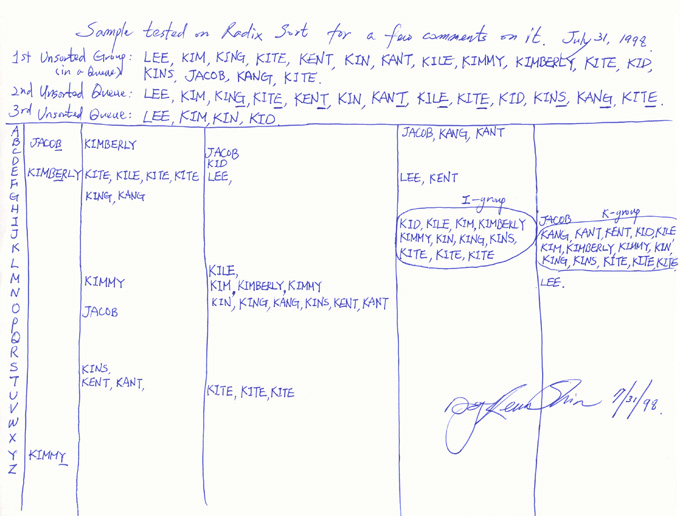 Sample tested on Radix Sort for a few comments on it. July 31, 1998.
1st Unsorted Group: LEE, KIM, KING, KITE, KENT, KIN, KANT, KILE, KIMMY, KIMBERLY, KITE, KID,
(in a Queue) KINS, JACOB, KANG, KITE.
2nd Unsorted Queue: LEE, KIM, KING, KITE, KENT, KIN, KANT, KILE, KITE, KID, KINS, KANG, KITE.
3rd Unsorted Queue: LEE, KIM, KIN, KID.
A JACOB, KANG, KANT
B JACOB KIMBERLY
C JACOB
D KID
E KIMBERLY KITE, KILE, KITE, KITE LEE, LEE, KENT
F
G KING, KANG I-group
H
I KID, KILE, KIM, KIMBERLY JACOB K-group
J KIMMY, KIN, KING, KINS, KANG, KANT, KENT, KID, KILE
K KITE, KITE, KITE KIM, KIMBERLY, KIMMY, KIN,
L KILE, KING, KINS, KITE, KITE, KITE
M KIMMY KIM, KIMBERLY, KIMMY LEE.
N KIN, KING, KANG, KINS, KENT, KANT
O JACOB
P
Q
R
S KINS,
T KENT, KANT, KITE, KITE, KITE
U
V 7/31/98.
W
X
Y KIMMY
Z